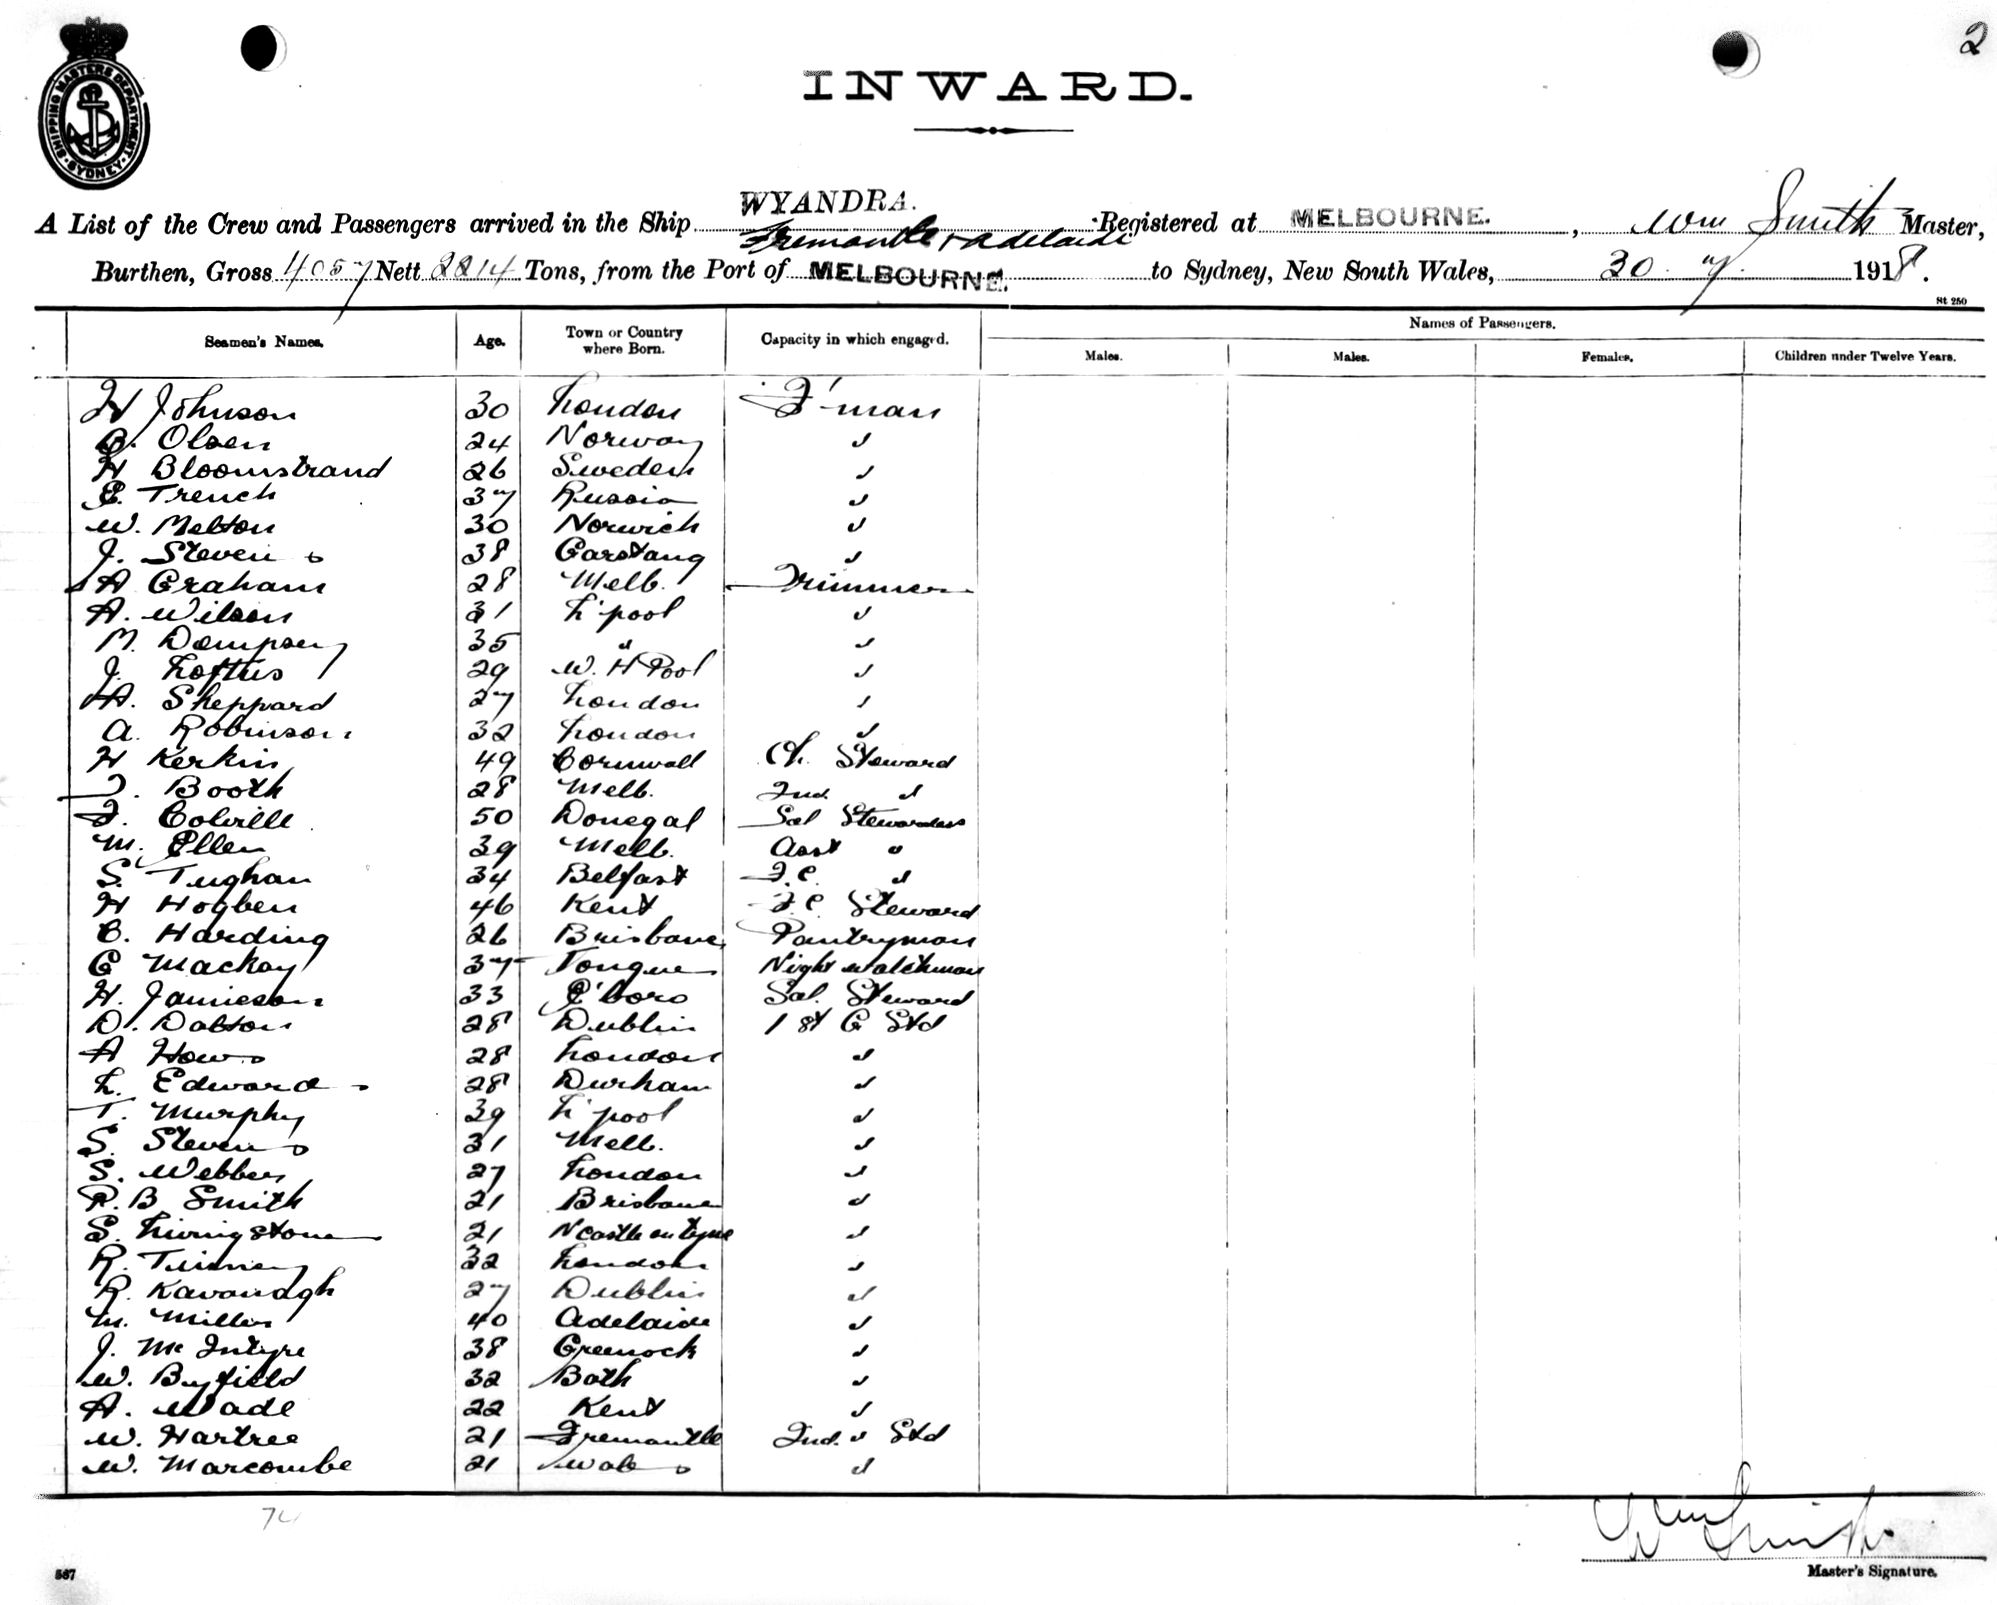 2
SHIPPING MASTERS DEPARTMENT. SYDNEY
INWARD.
WYANDRA.
A List of the Crew and Passengers arrived in the Ship Registered at MELBOURNE. , Wm Smith Master,
Fremantle & Adelaide
Burthen, Gross 4057 Nett 2214 Tons, from the Port of MELBOURNE. to Sydney, New South Wales, 30. 7. 1918.
St 250
Names of Passengers.
Seamen's Names. Age. Town or Country where Born. Capacity in which engaged. Males. Males. Females. Children under Twelve Years.
H Johnson 30 London F'man
Olsen 24 Norway "
H Bloomstrand 26 Sweden "
E. Trench 37 Russia "
W. Melton 30 Norwich "
J. Stevens 38 Garstang "
A Graham 28 Melb. Trimmer
A. Wilson 31 L'pool "
M. Dempsey 35 " "
J. Loftus 29 W. H Pool "
A. Sheppard 27 London "
A. Robinson 32 London "
H Kerkin 49 Cornwall Ch. Steward
Booth 28 Melb. 2nd. "
F. Colville 50 Donegal Sal Stewardess
M. Ellen 39 Melb. Asst "
S. Tughan 34 Belfast F.C. "
H Hogben 46 Kent F.C. Steward
C. Harding 26 Brisbane Pantryman
G Mackay 37 Tongue Night watchman
H. Jamieson 33 P'boro Sal. Steward
D. Dalton 28 Dublin 1st C Std
A Hows 28 London "
L. Edwards 28 Durham "
T. Murphy 39 L'pool "
S. Stevens 31 Melb. "
S. Webber 27 London "
R. B Smith 21 Brisbane "
S. Livingstone 21 N castle on Tyne "
R. 32 London "
R. Kavanagh 27 Dublin "
M. Miller 40 Adelaide "
J. McIntyre 38 Greenock "
W. Byfield 32 Bath "
A. Wade 22 Kent "
W. Hartree 21 Fremantle 2nd. " Std
W. Marcombe 21 Wales "
Wm Smith
Master's Signature.
567